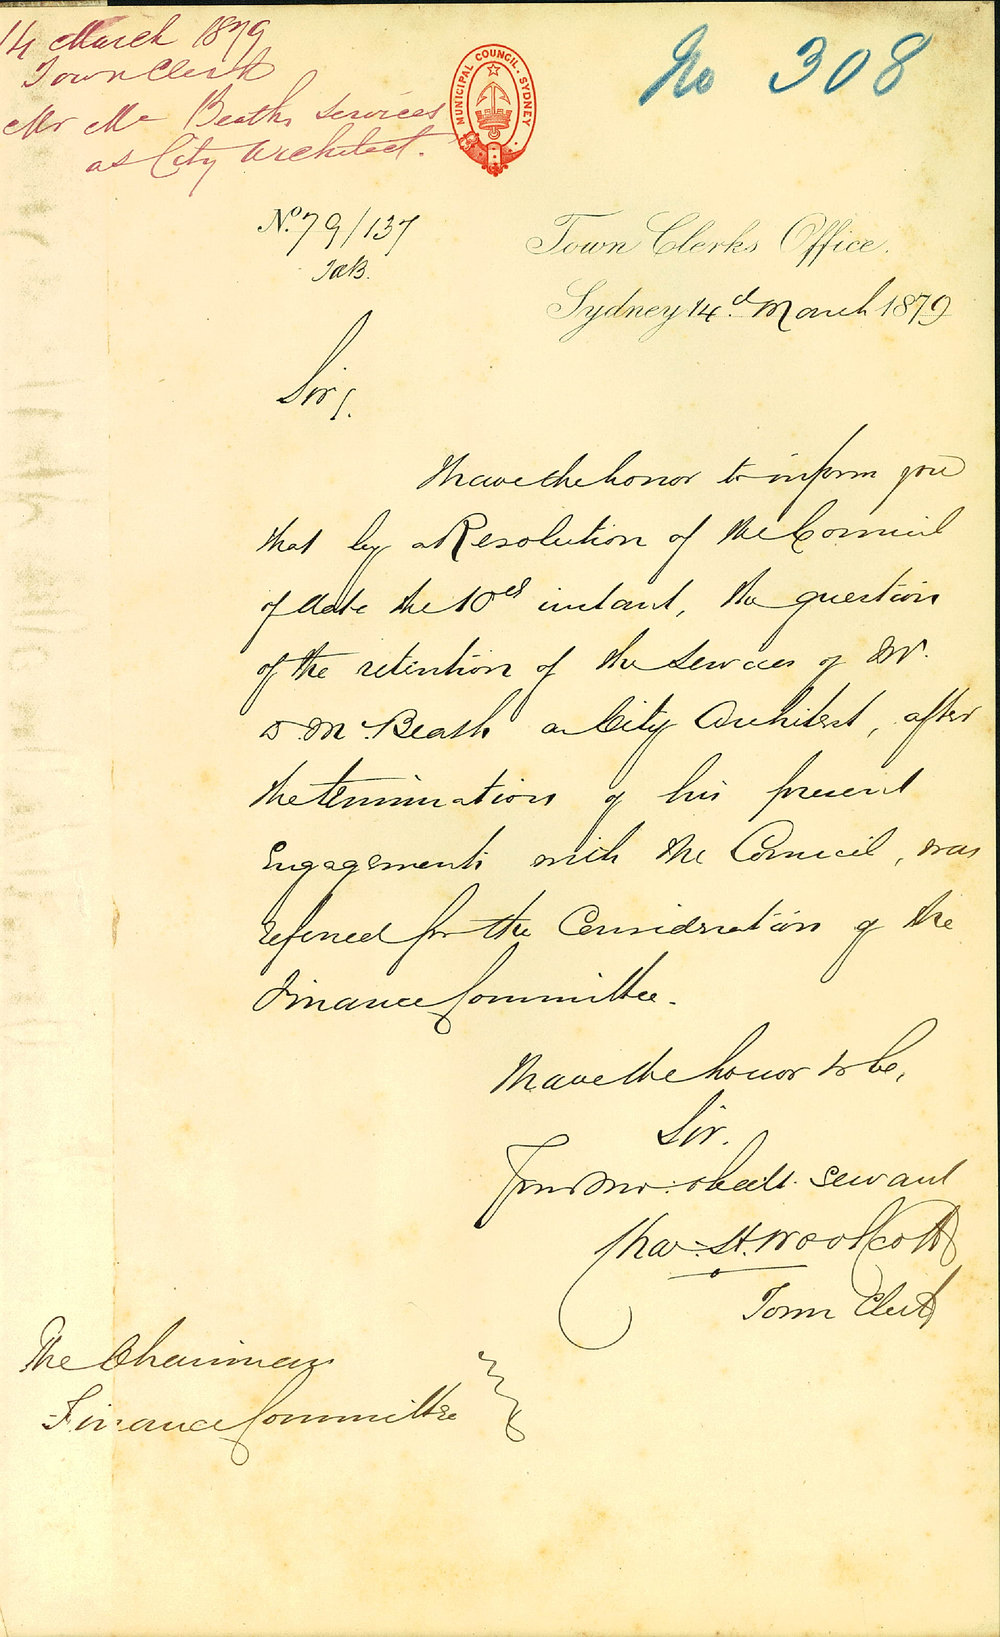 14 March 1879
Town Clerk
Mr Mc Beaths Services
as City Architect.
MUNICIPAL COUNCIL. SYDNEY
No 308
No. 79/137
Town Clerks Office.
Sydney 14th March 1879
Sir,
I have the honor to inform you
that by a Resolution of the Council
of date the 10th instant, the question
of the retention of the Services of Mr.
D. McBeath as City Architect, after
the termination of his present
Engagement with the Council, was
referred for the Consideration of the
Finance Committee.
I have the honor to be,
Sir.
Your Mo: obedt. Servant
Chas. H. Woolcott
Town Clerk
The Chairman
Finance Committee